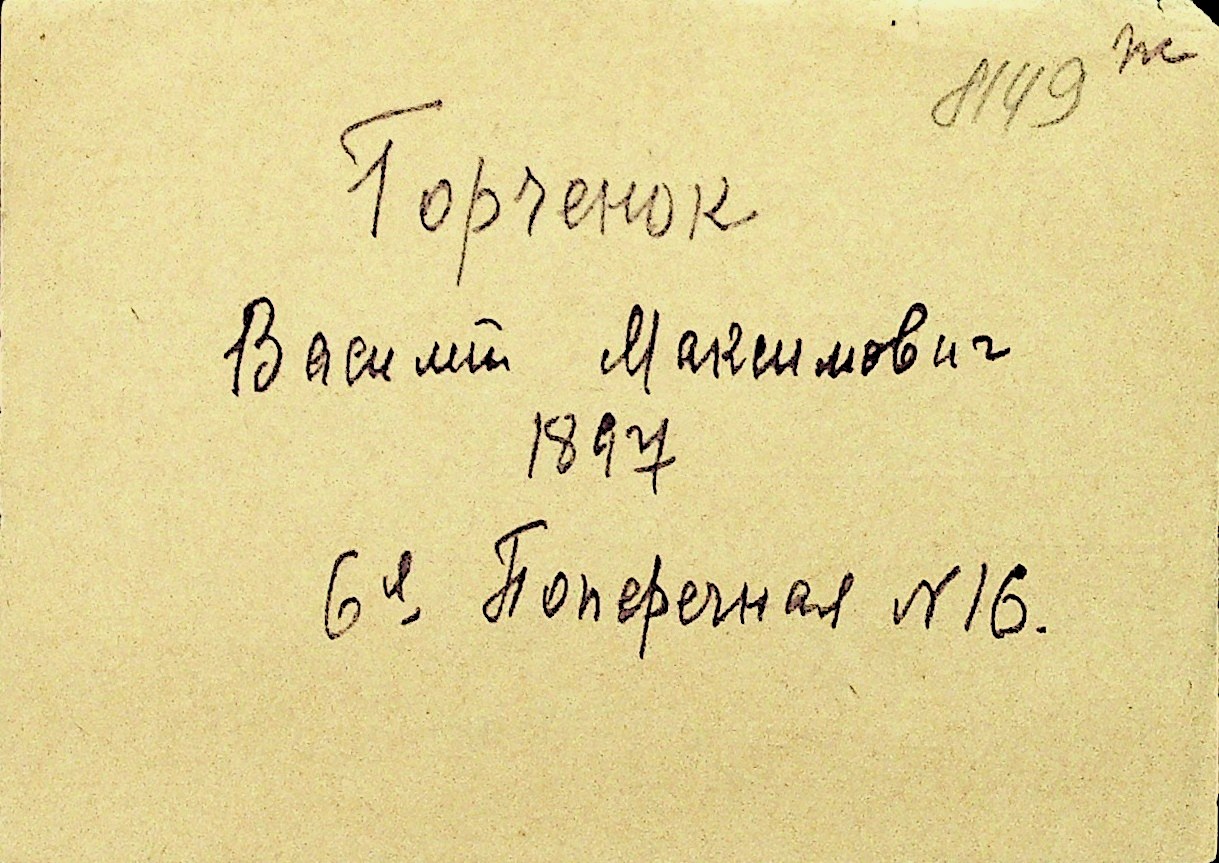 8149
Горченок
Василий Максимович
1897
6я Поперечная N 16.